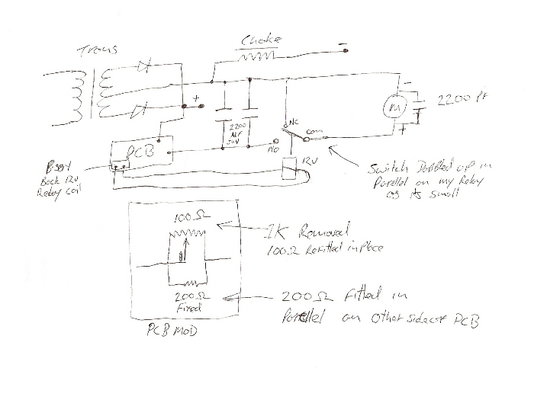 Trans
Choke
-
+
-
M
2200 Pf
+
2200
50V
NC
Com
NO
12V
PCB
Back 12V
Relay Coil
Switch Doubled up in
Parallel on my Relay
as its small
100Ω
1K Removed
100Ω Refitted in place
200Ω
Fixed
200Ω Fitted in
Parallel on other side of PCB
PCB MOD